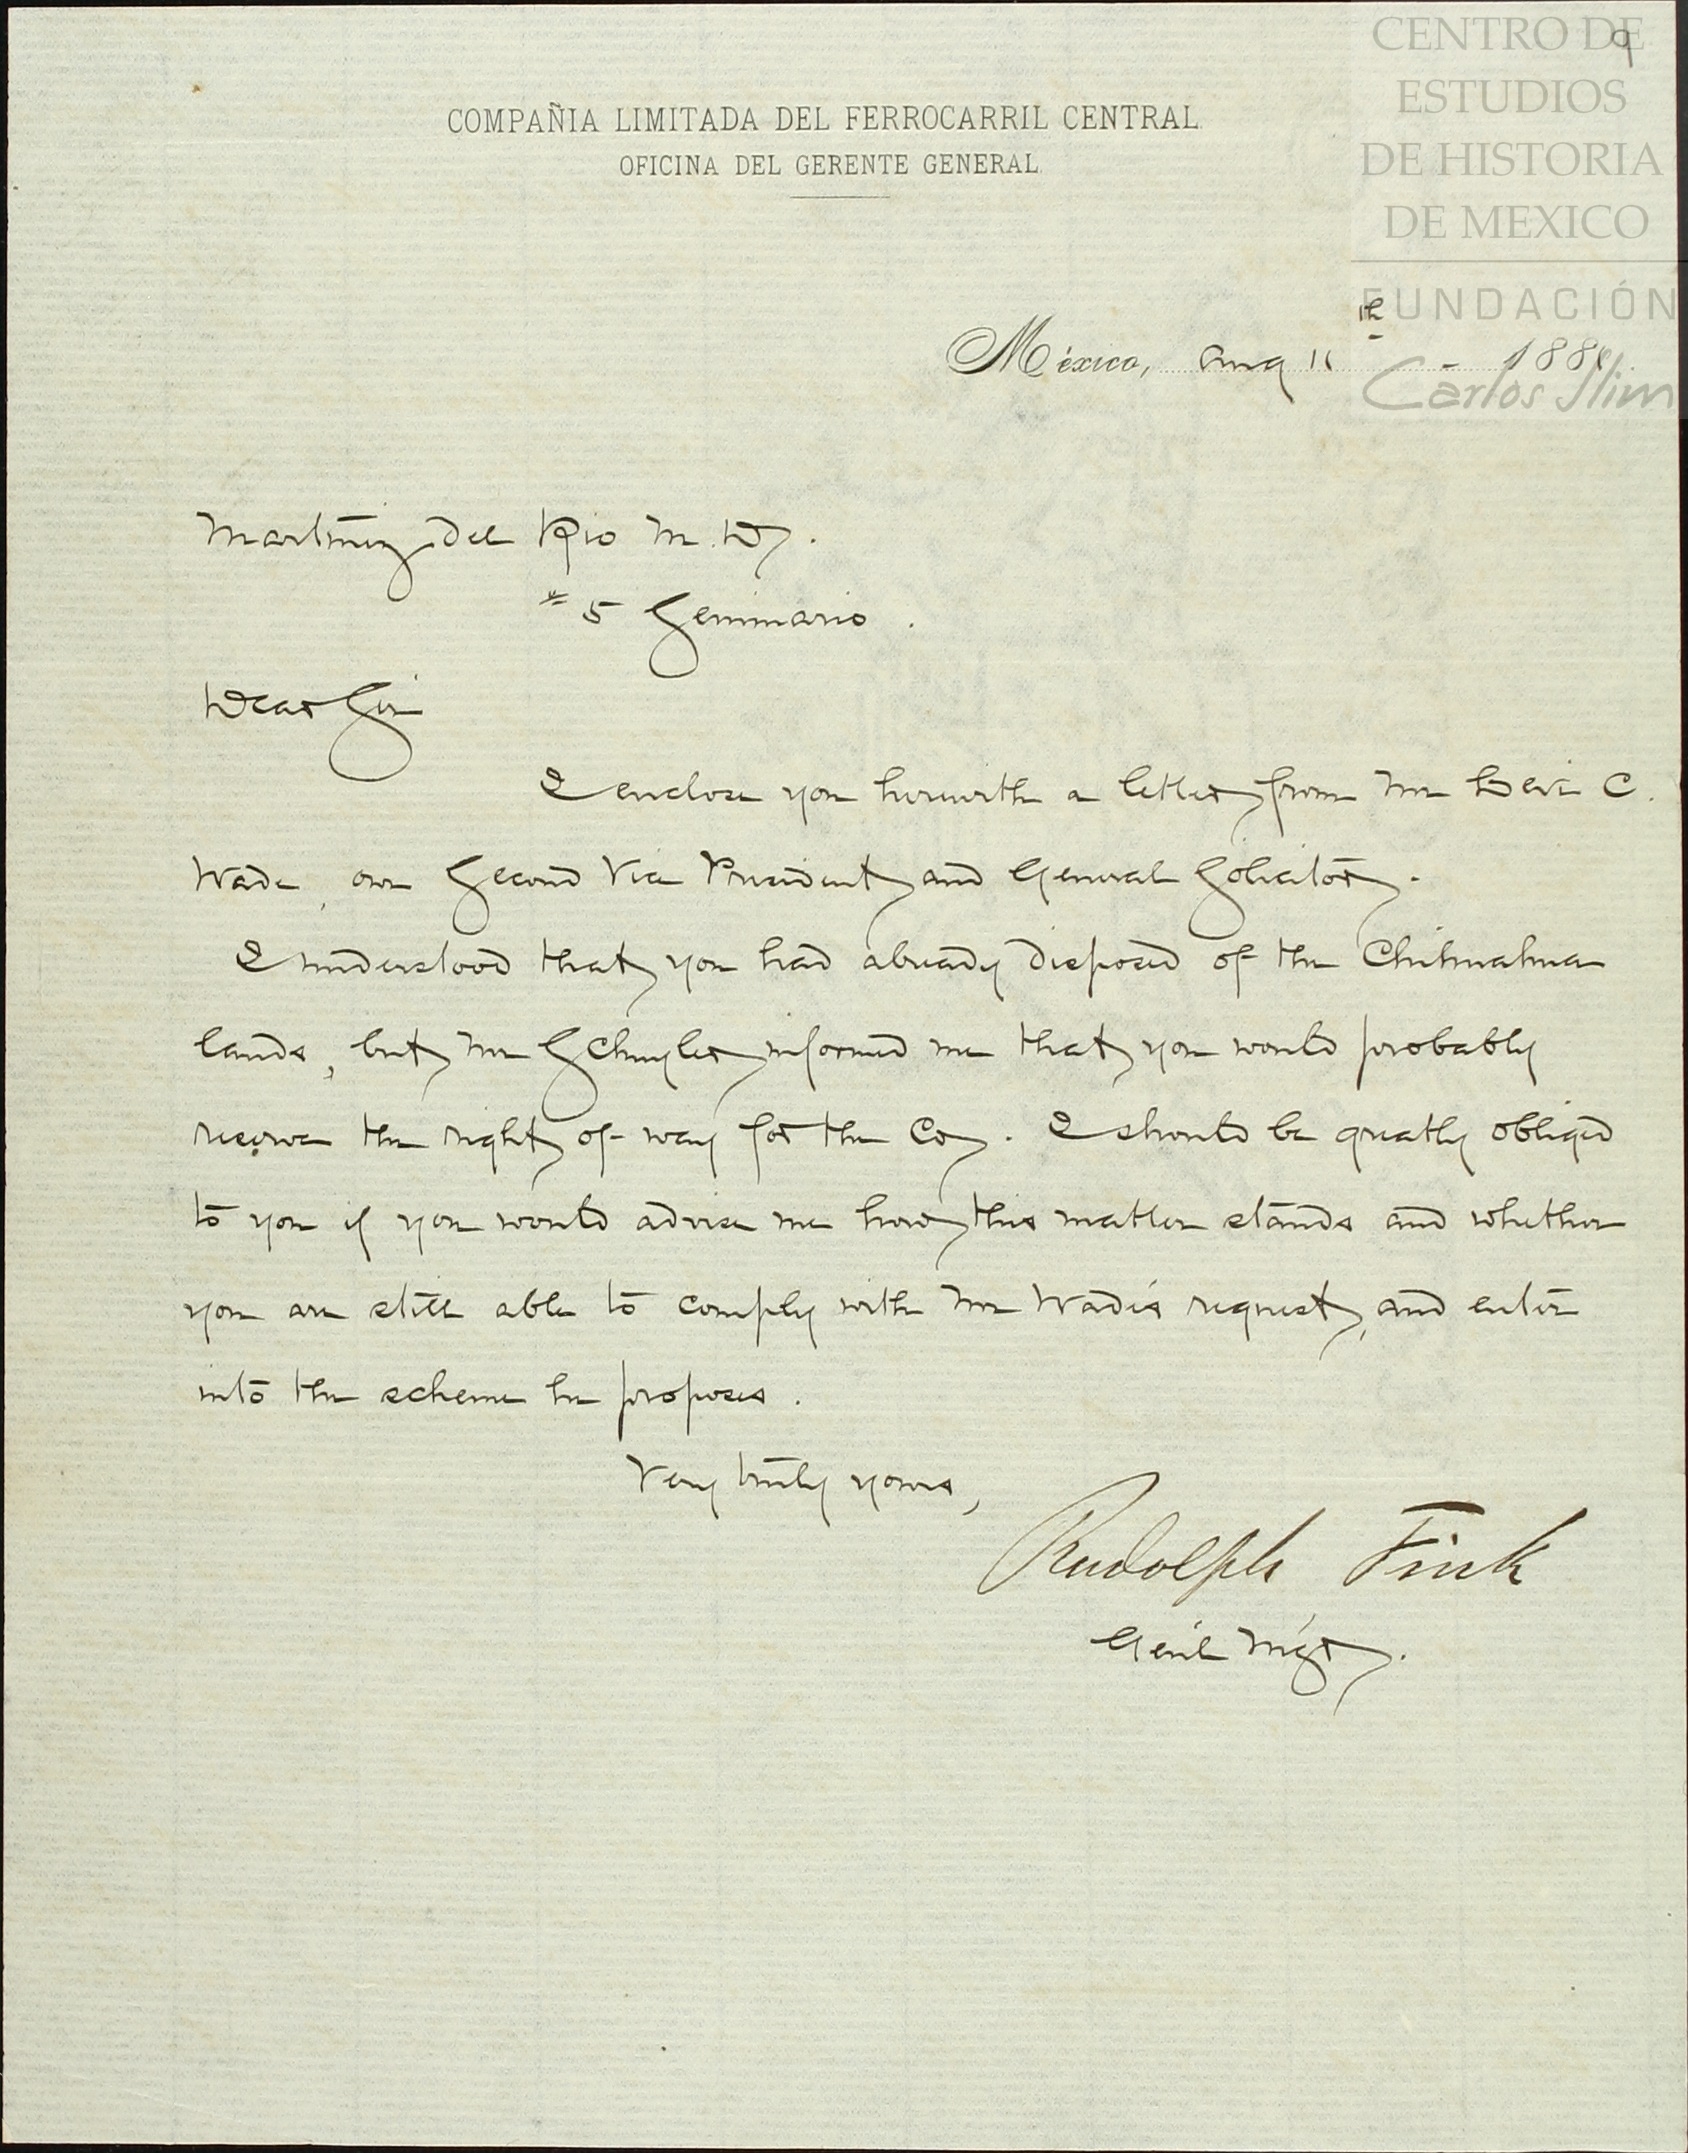 CENTRO DE
ESTUDIOS
DE HISTORIA
DE MEXICO
FUNDACIÓN
Carlos Slim
9
COMPAÑIA LIMITADA DEL FERROCARRIL CENTRAL
OFICINA DEL GERENTE GENERAL
México, Aug 11th 188
Martinez del Rio M.D.
# 5 Seminario.
Dear Sir
I enclose you herewith a letter from Mr Levi C.
Wade, our Second Vice President and General Solicitor.
I understood that you had already disposed of the Chihuahua
lands, but Mr Schuyler informed me that you would probably
reserve the right of way for the Co. I should be greatly obliged
to you if you would advise me how this matter stands and whether
you are still able to comply with Mr Wade's request, and enter
into the scheme he proposes.
Very truly yours,
Rudolph Fink
Gen'l M'g'r.